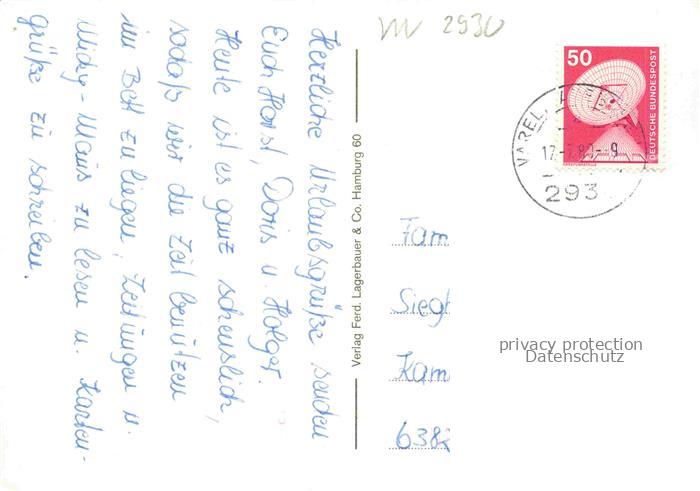 Herzliche Urlaubsgrüße senden
Euch Horst, Doris u. Holger.
Heute ist es ganz scheuslich,
sodaß wir die Zeit benützen
im Bett zu liegen, Zeitungen u.
Micky-Maus zu lesen u. Karten-
grüße zu schreiben.
Verlag Ferd. Lagerbauer & Co. Hamburg 60
2930
50
DEUTSCHE BUNDESPOST
VAREL
293
Fam
Siegf
Kam
638
privacy protection
Datenschutz